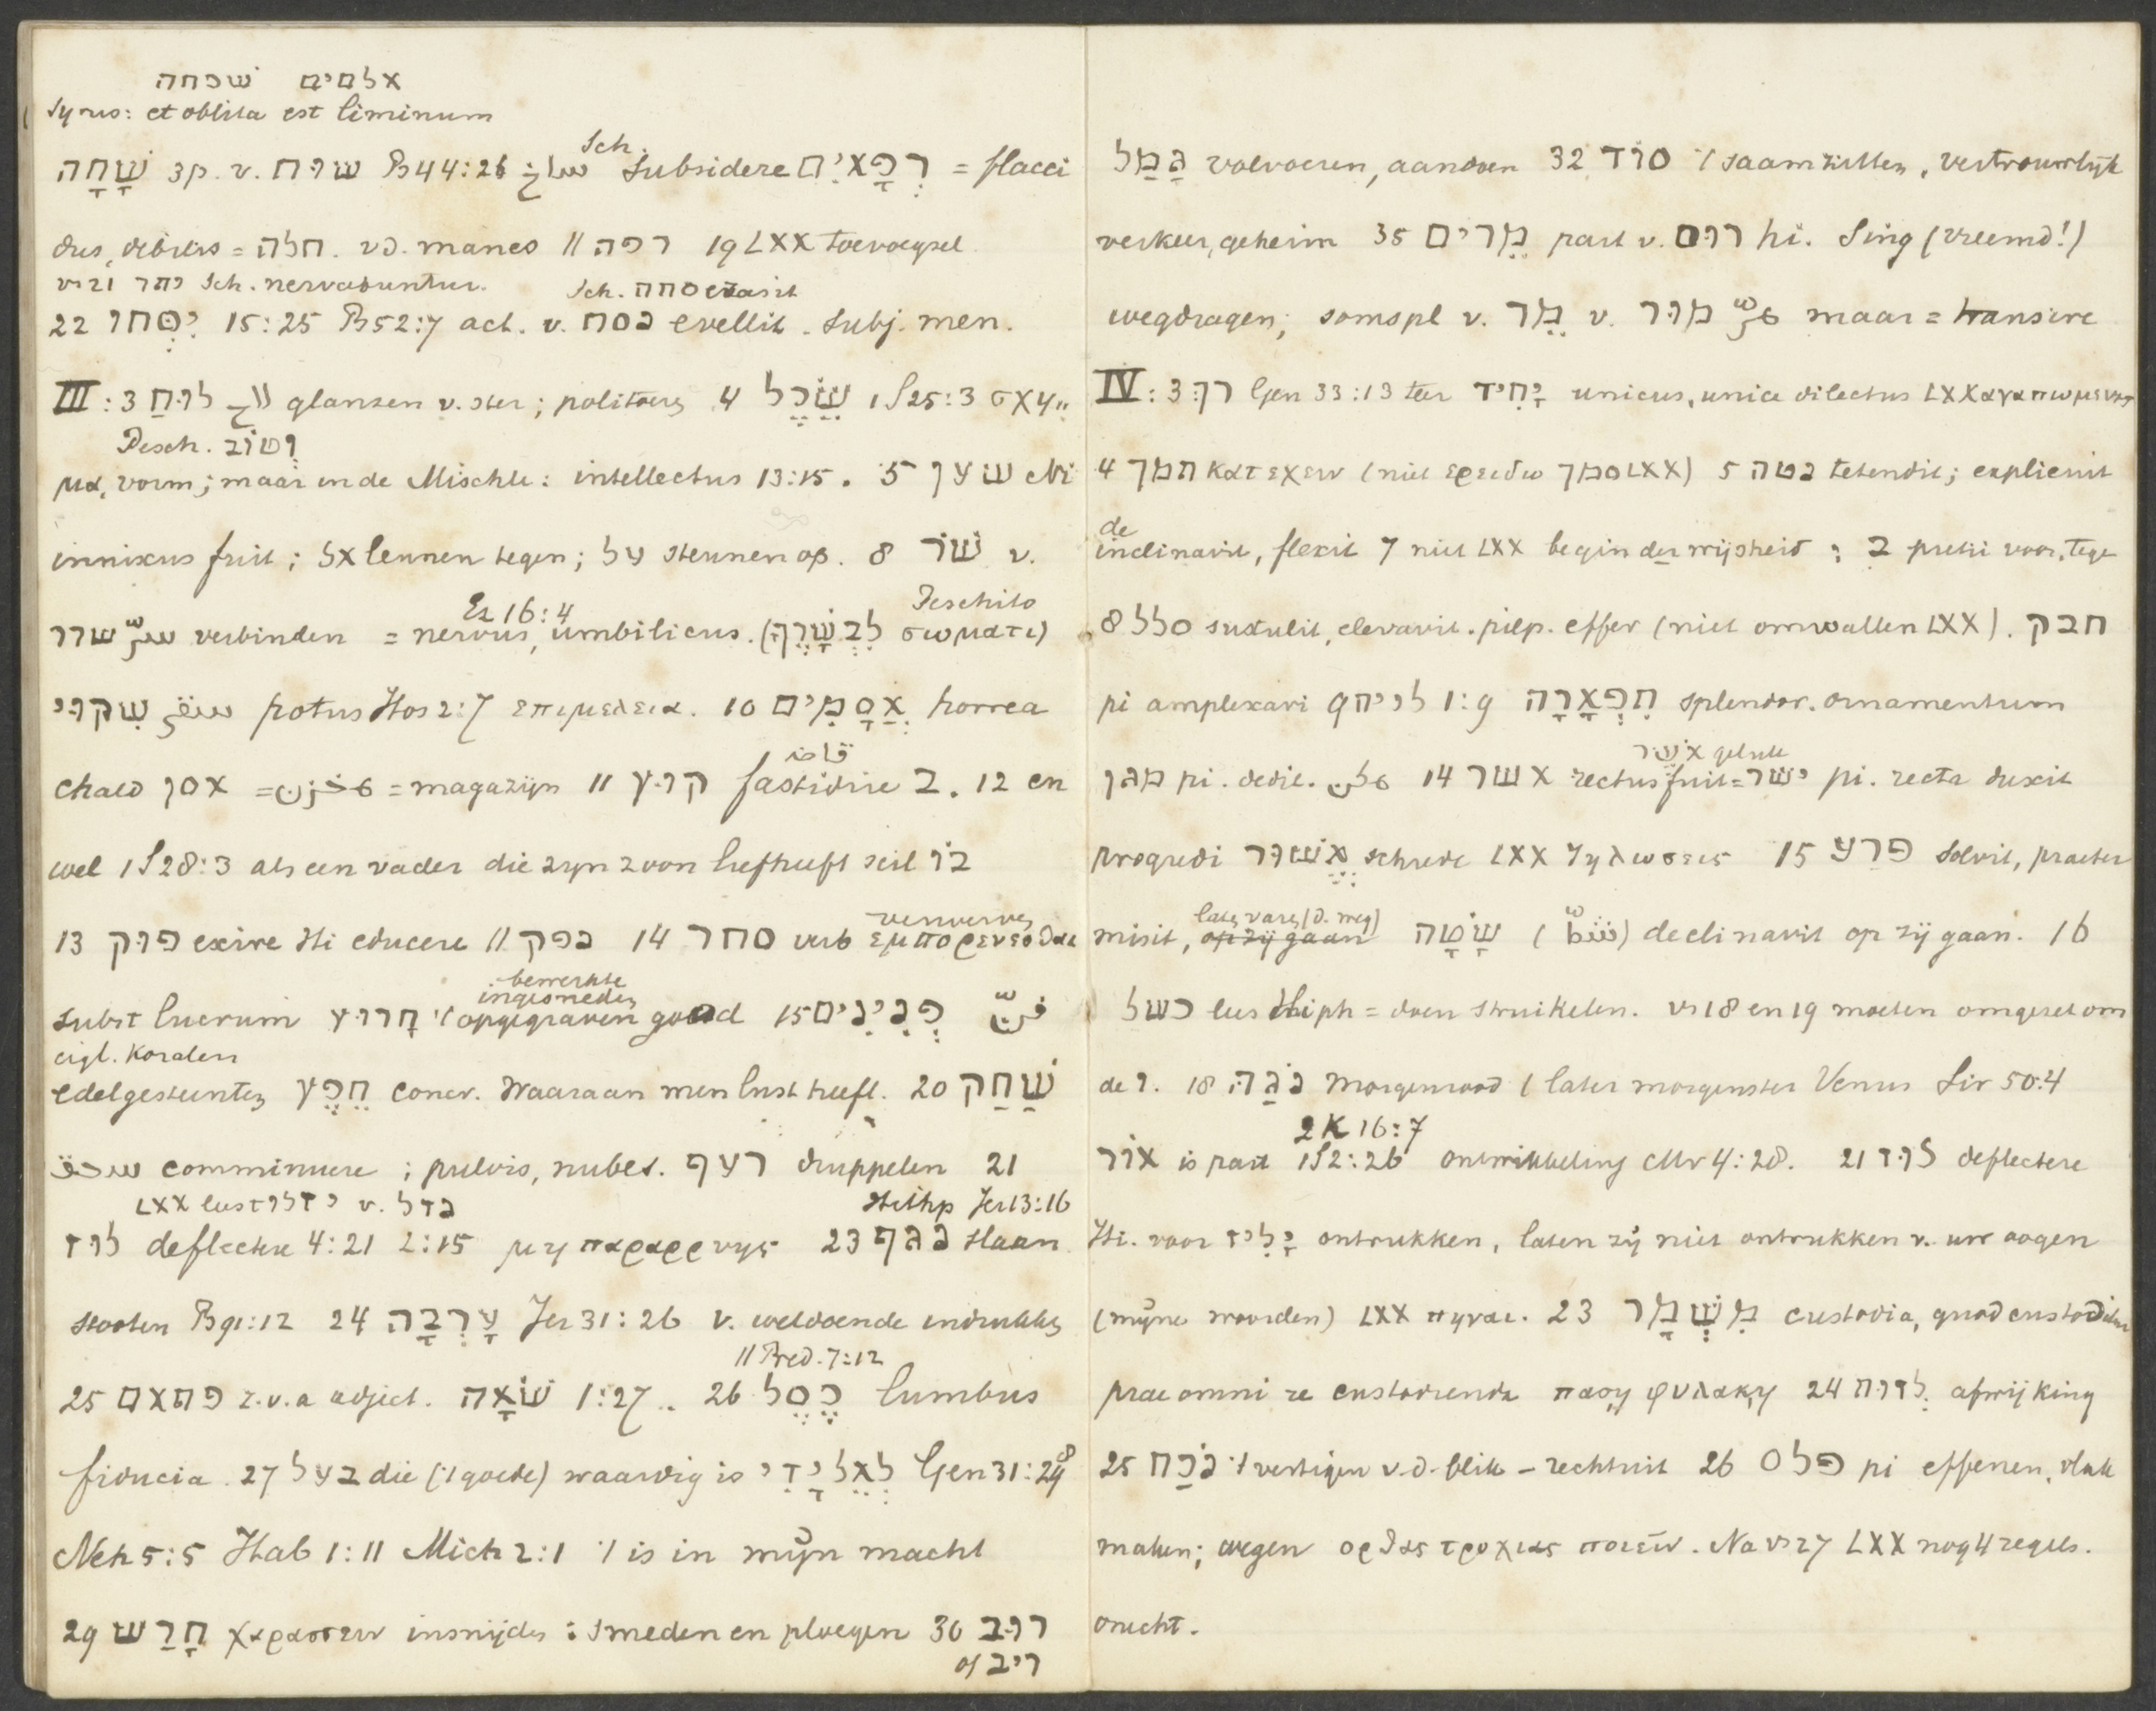 אלמים שכחה
Syrus: et oblita est liminum
Sch.
שָׁחָה 3p. v. שוח Ps 44:26 ساخ subsidere רְפָאִים = flacci
dus, debilis = חלה. vd. manes 11 רפה 19 LXX toevoegsel.
vs 21 יתר Sch. nervabuntur. Sch. סחה evasit
22 יִסְּחוּ 15:25 Ps 52:7 act. v. נסח evellit. Subj. men.
III: 3 לוּחַ לاح glanzen v. ster; politoeren 4 שֵׂכֶל 1 S 25:3 σχη
Pesch. וְטוֹב
μα, vorm; maar in de Mischle: intellectus 13:15. 5 שׁען Ni
innixus fuit; אל leunen tegen; על steunen op. 8 שֹׁר v.
Ez 16:4 Peschito
שרר سرّ verbinden = nervus, umbilicus. (לִבְשָׂרֶךָ σωματι)
שִׁקּוּי سقى potus Hos 2:7 επιμελεια. 10 אֲסָמִים horrea
قاض
chald אסן = مخزن = magazijn 11 קוּץ fastidire ב. 12 en
wel 1 S 28:3 als een vader die zijn zoon liefheeft scil בוֹ
verwerven
13 פוּק exire Hi educere 11 נפק 14 סחר verb εμπορευεσθαι
bewerkte
ingesneden
subst lucrum חָרוּץ 't opgegraven goud 15 פְּנִינִים فنن
eigl. Koralen
edelgesteenten חֵפֶץ concr. Waaraan men lust heeft. 20 שַׁחַק
سحق comminuere; pulvis, nubes. רעף druppelen 21
LXX lees תזל v. נזל Hithp Jer 13:16
לוּז deflectere 4:21 2:15 μη παραρρυης 23 נגף slaan
stooten Ps 91:12 24 עָרְבָה Jer 31:26 v. weldoende indrukken
11 Pred. 7:12
25 פתאם z.v.a adject. שֹׁאָה 1:27.. 26 כֶּסֶל lumbus
fiducia. 27 בעל die ('t goede) waardig is לְאֵל יָדִי Gen 31:29
Neh 5:5 Hab 1:11 Mich 2:1 't is in mijn macht
29 חָרַשׁ χαρασσειν insnijden: smeden en ploegen 30 רוּב
of ריב
גָּמַל volvoeren, aandoen 32 סוֹד 't saamzitten, vertrouwelijk
verkeer, geheim 35 מֵרִים part v. רוּם hi. Sing (vreemd!)
wegdragen; soms pl v. מֵר v. מוּר مرّ maar = transire
IV: 3 רַךְ Gen 33:13 teer יָחִיד unicus, unice dilectus LXX αγαπωμενος
4 תמך κατεχειν (niet ερειδω סמך LXX) 5 נטה tetendit; explicuit
de
inclinavit, flexit 7 niet LXX begin der wijsheid; ב pretii voor, tege
8 סלל sustulit, elevavit. pilp. effer (niet omwallen LXX). חבק
pi amplexari 9 לויה 1:9 תִּפְאָרָה splendor. ornamentum
אֹשֶׁר geluk
מגן pi. dedit. مكن 14 אשר rectus fuit = ישר pi. recta duxit
progredi אֲשׁוּר schrede LXX ζηλωσεις 15 פרע solvit, praeter
laten varen (d. weg)
misit, op zij gaan שָׂטָה (شطّ) declinavit op zij gaan. 16
כשל lees Hiph = doen struikelen. vs 18 en 19 moeten omgezet om
de ו. 18 נֹגַהּ morgenrood (later morgenster Venus Sir 50:4
2 K 16:7
אוֹר is part 1 S 2:26 ontwikkeling Mr 4:28. 21 לוּז deflectere
Hi. voor יָלִיז ontrukken, laten zij niet ontrukken v. uw oogen
(mijne woorden) LXX πηγαι. 23 מִשְׁמָר custodia, quod custoditur
prae omni re custodienda παση φυλακη 24 לְזוּת afwijking
25 נֹכַח 't vestigen v. d. blik – rechtuit 26 פלס pi effenen, vlak
maken; wegen ορθας τροχιας ποιειν. Na vs 27 LXX nog 4 regels.
onecht.